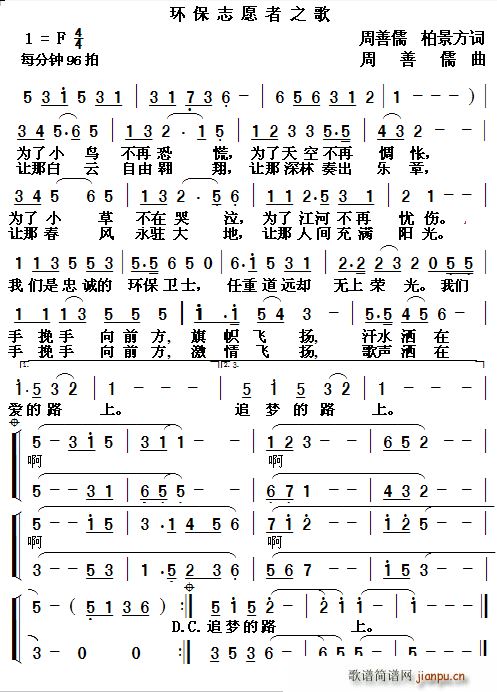 环保志愿者之歌
1 = F 4/4 周善儒 柏景方词
每分钟96拍 周善儒 曲
5 3 1 5 3 1 | 3 1 7 3 6 - | 6 5 6 5 3 1 2 | 1 - - - ) |
3 4 5 · 6 5 | 3 2 3 2 · 1 5 | 2 2 3 3 3 5 · 5 | 4 3 2 - - |
为了小 鸟 不再恐 慌，为了天空不再 惆 怅，
让那白 云 自由翱 翔，让那深林奏出 乐 章，
3 4 5 6 5 | 1 3 2 · 5 6 | 1 1 2 · 5 3 | 2 1 - - - |
为了小 草 不在哭 泣，为了江河不再 忧 伤。
让那春 风 永驻大 地，让那人间充满 阳 光。
1 1 3 5 5 · 5 | 5 · 5 6 5 0 | 1 2 3 5 3 2 | 3 · 2 2 3 2 0 5 5 |
我们是忠诚的 环保卫士，任重道远却 无上荣 光。我们
1 1 1 3 | 3 · 4 3 2 - | 1 · 1 1 · 3 | 5 4 - - | 3 · 5 4 5 6 - |
手 挽手 向前方，旗 帜飞 扬，汗水洒在
手 挽手 向前方，激 情飞 扬，歌声洒在
1. 2. 3.
1 · 5 3 2 | 1 - - - | 1 5 3 2 | 1 - - - |
爱的路 上。 追 梦的路 上。
5 - 3 1 5 | 3 1 1 - - | 1 2 3 - - | 6 5 2 - - |
啊
5 - - 3 1 | 6 5 5 - - | 6 6 7 1 - - | 4 3 2 2 - - |
5 - - 1 5 | 3 · 1 4 5 6 | 7 1 2 - - | 1 1 2 5 - - |
啊
3 - - 5 5 | 1 · 5 2 3 6 | 5 5 6 - - | 5 5 6 2 - - |
5 - ( 5 1 3 6 | 5 - - - ) :| 5 1 5 2 | 1 - - - |
D.C.追梦的路 上。
3 - 0 0 | 0 0 0 0 :| 5 6 5 6 | 5 - - - |
歌谱简谱网
jianpu.cn